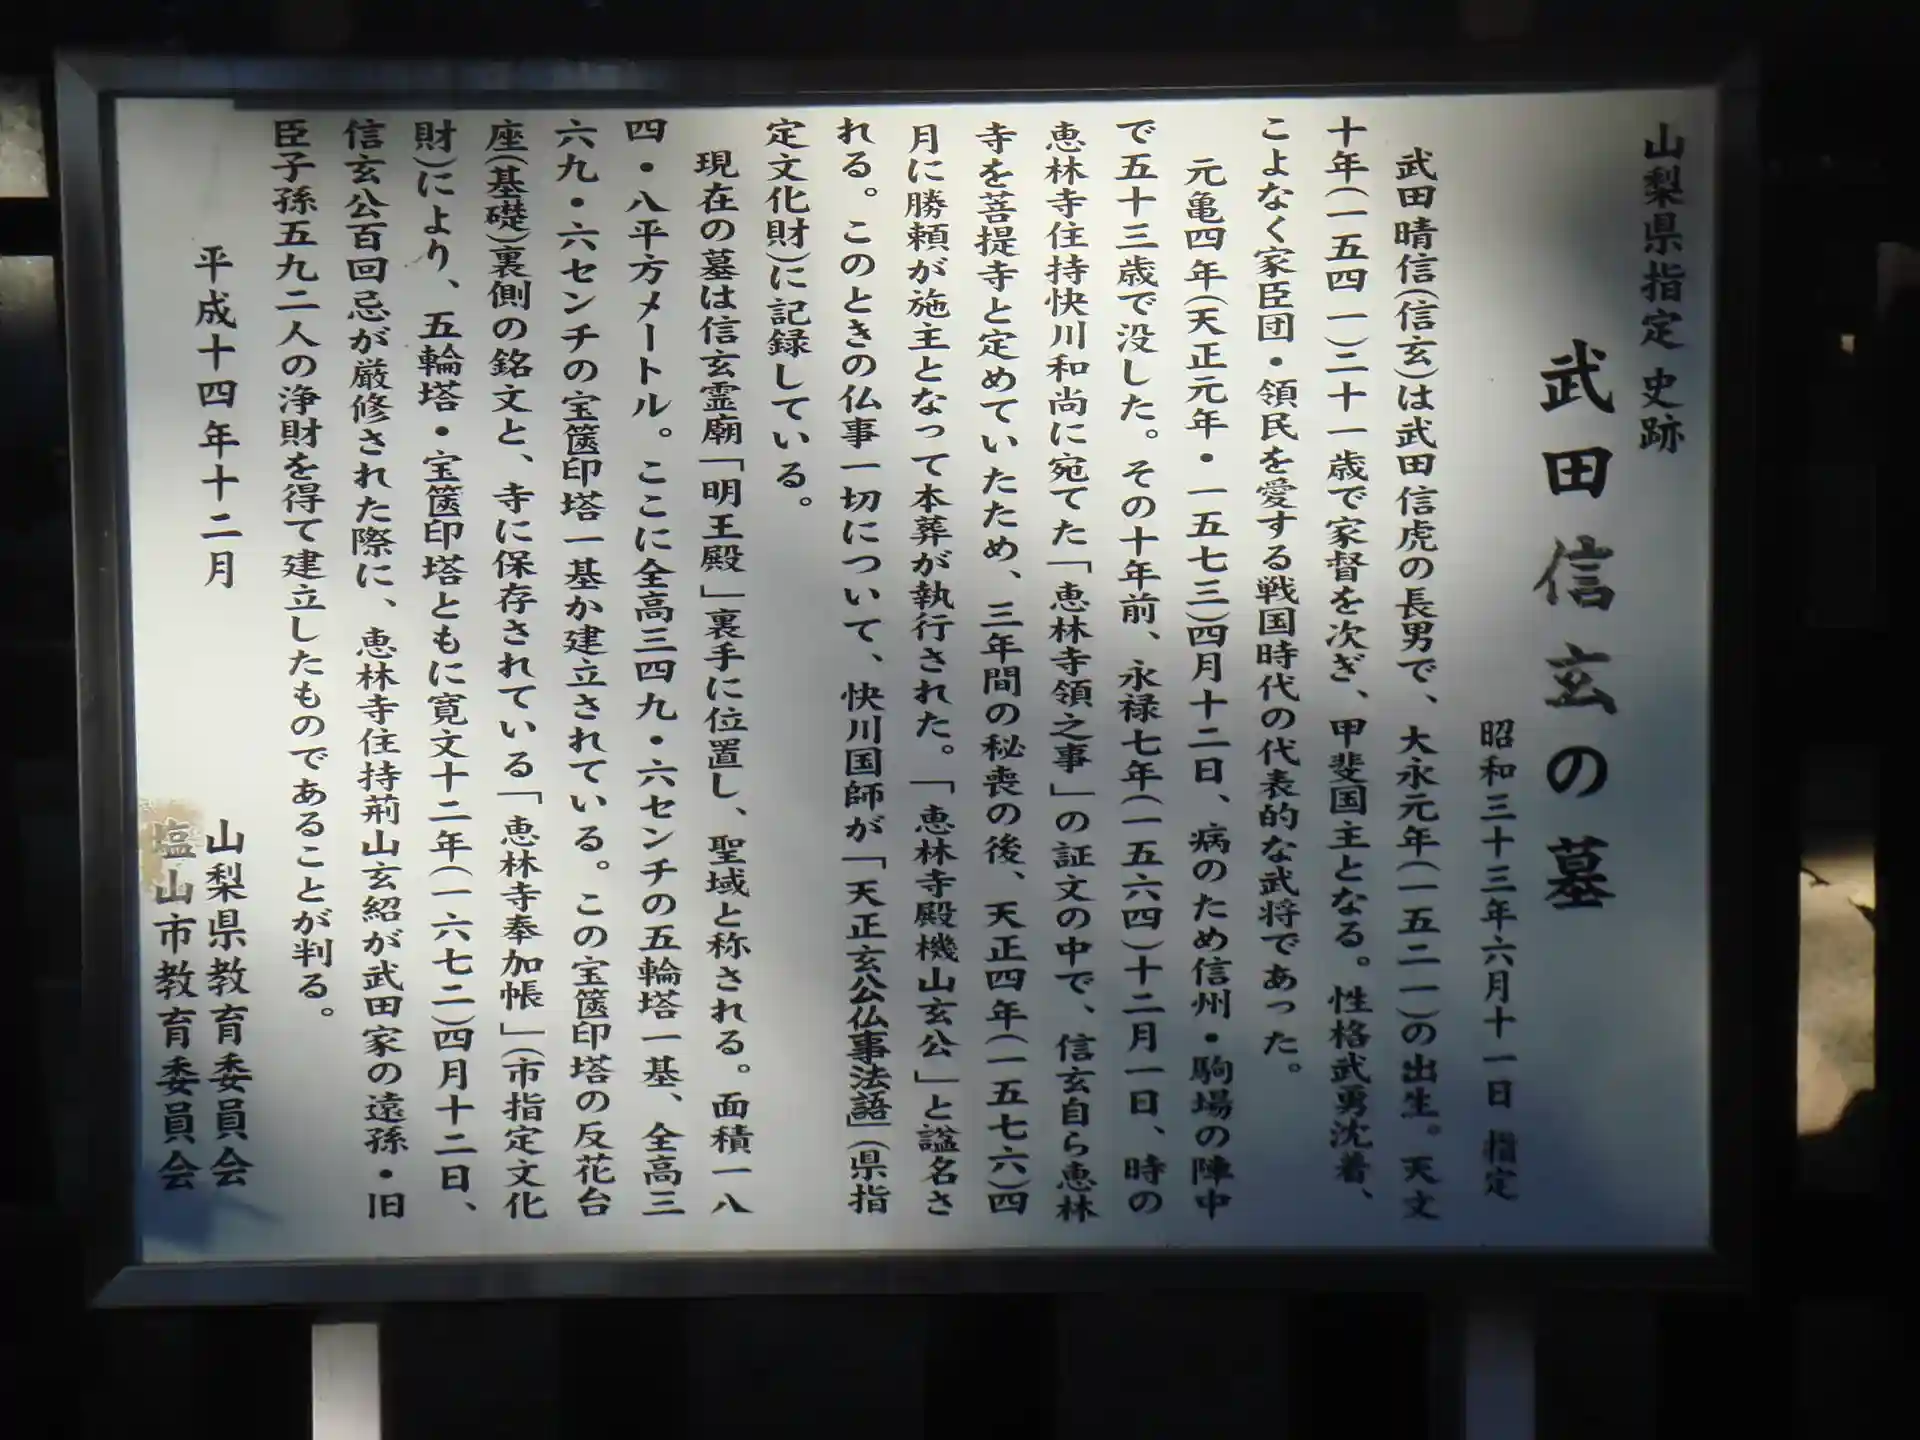 山梨県指定 史跡
武田信玄の墓
昭和三十三年六月十一日 指定
武田晴信(信玄)は武田信虎の長男で、大永元年(一五二一)の出生。天文
十年(一五四一)二十一歳で家督を次ぎ、甲斐国主となる。性格武勇沈着、
こよなく家臣団・領民を愛する戦国時代の代表的な武将であった。
元亀四年(天正元年・一五七三)四月十二日、病のため信州・駒場の陣中
で五十三歳で没した。その十年前、永禄七年(一五六四)十二月一日、時の
恵林寺住持快川和尚に宛てた「恵林寺領之事」の証文の中で、信玄自ら恵林
寺を菩提寺と定めていたため、三年間の秘喪の後、天正四年(一五七六)四
月に勝頼が施主となって本葬が執行された。「恵林寺殿機山玄公」と諡名さ
れる。このときの仏事一切について、快川国師が「天正玄公仏事法語」(県指
定文化財)に記録している。
現在の墓は信玄霊廟「明王殿」裏手に位置し、聖域と称される。面積一八
四・八平方メートル。ここに全高三四九・六センチの五輪塔一基、全高三
六九・六センチの宝篋印塔一基か建立されている。この宝篋印塔の反花台
座(基礎)裏側の銘文と、寺に保存されている「恵林寺奉加帳」(市指定文化
財)により、五輪塔・宝篋印塔ともに寛文十二年(一六七二)四月十二日、
信玄公百回忌が厳修された際に、恵林寺住持荊山玄紹が武田家の遠孫・旧
臣子孫五九二人の浄財を得て建立したものであることが判る。
平成十四年十二月
山梨県教育委員会
塩山市教育委員会